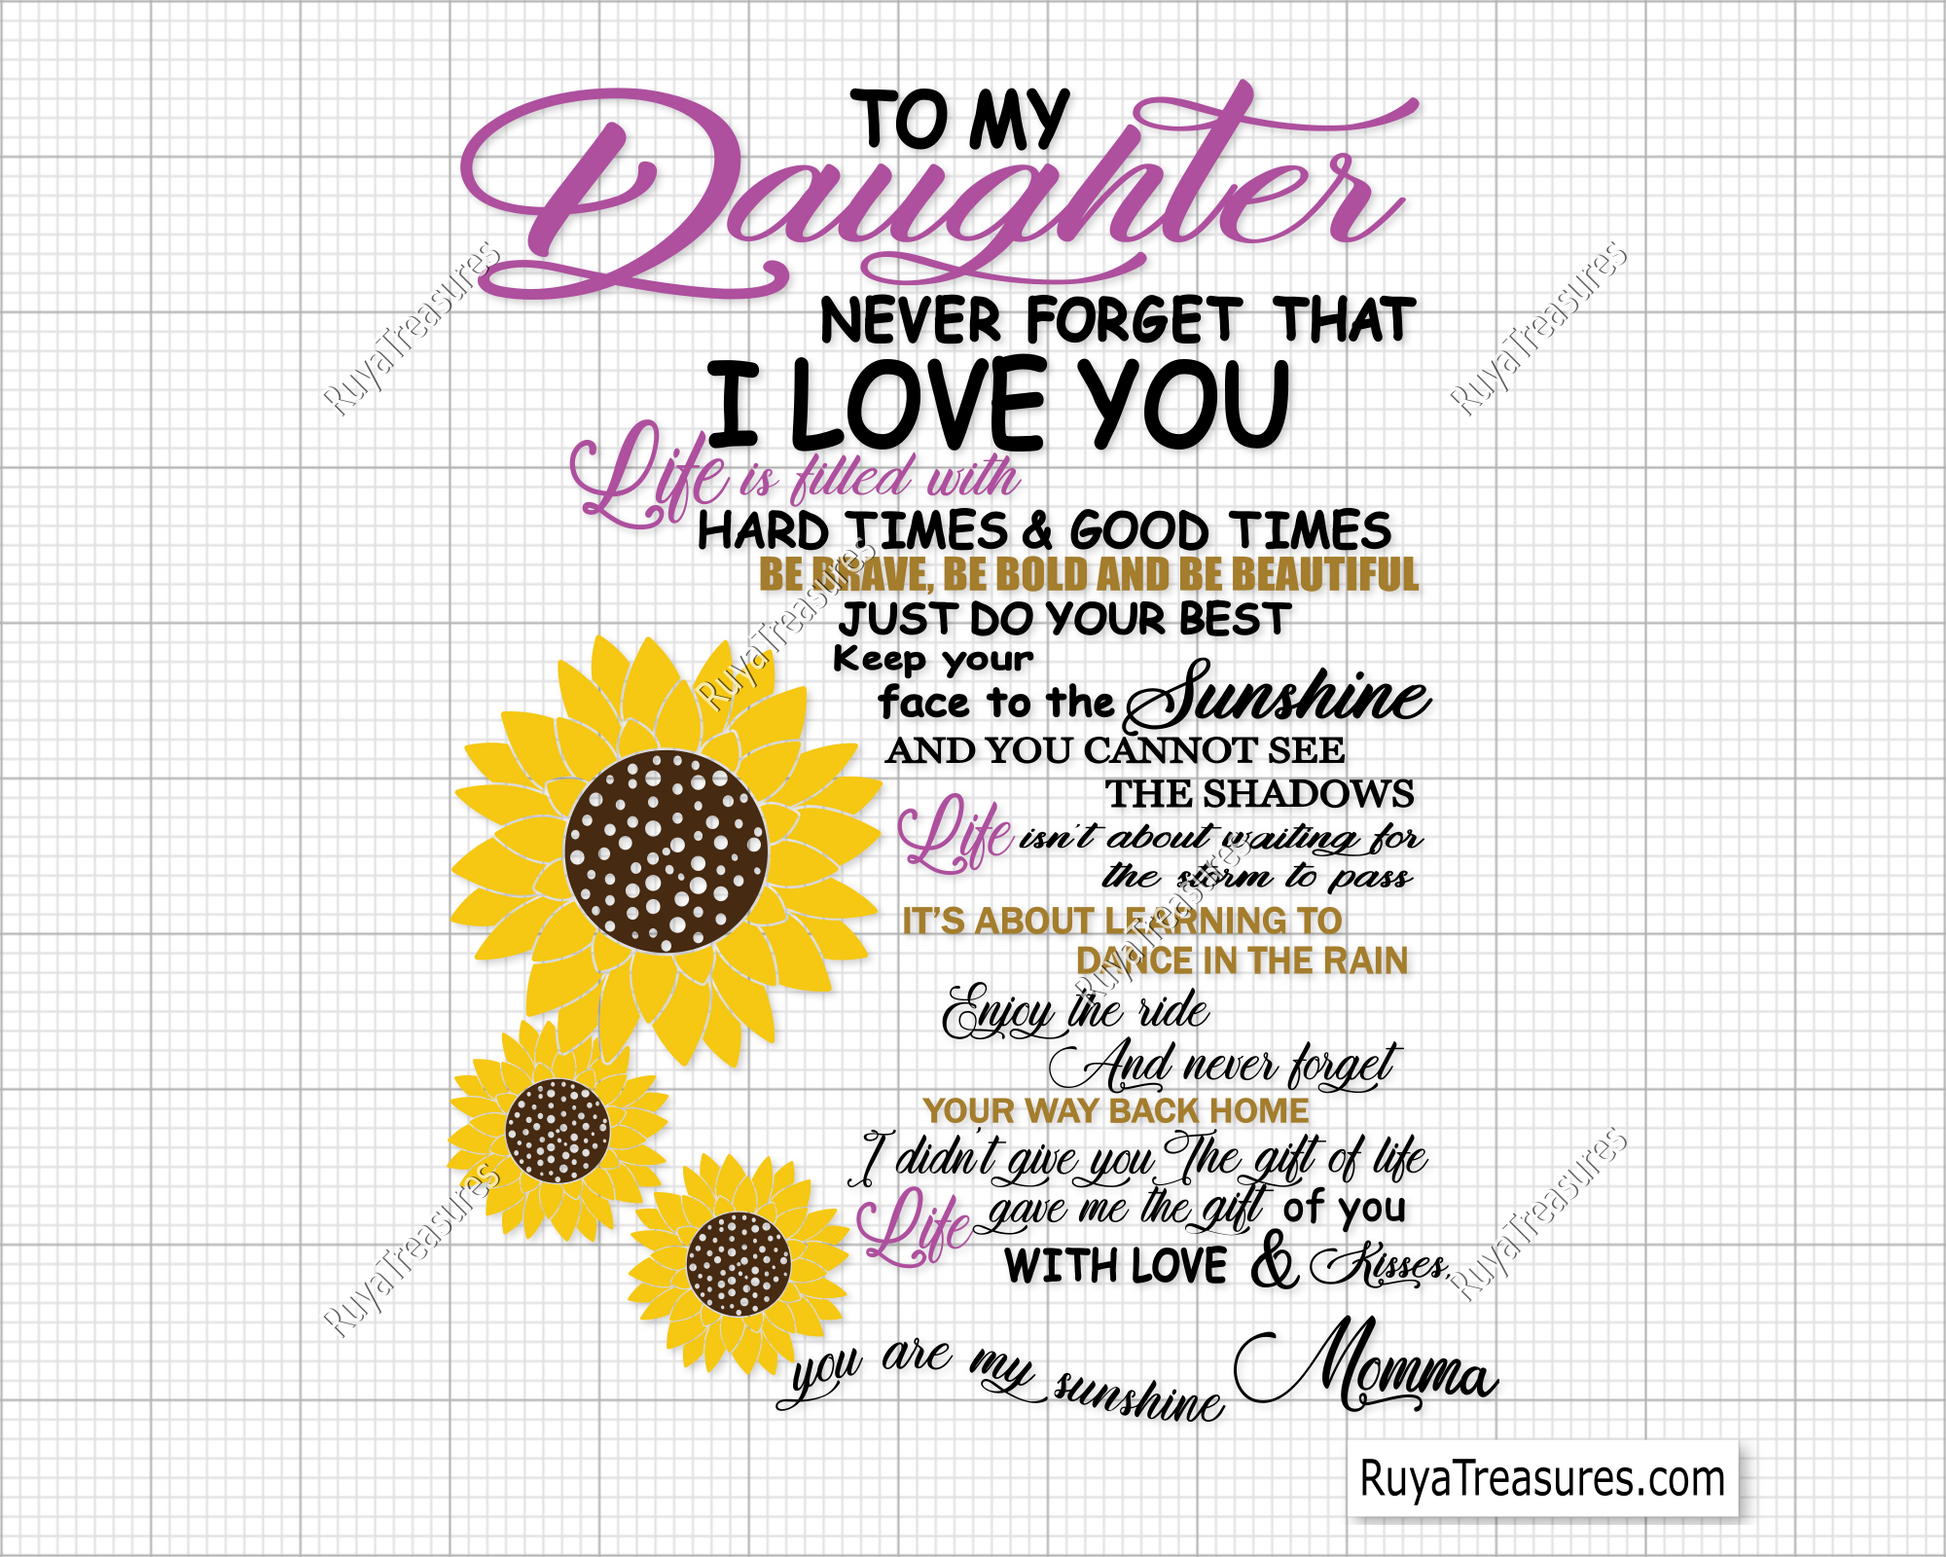 TO MY
Daughter
NEVER FORGET THAT
I LOVE YOU
Life is filled with
HARD TIMES & GOOD TIMES
BE BRAVE, BE BOLD AND BE BEAUTIFUL
JUST DO YOUR BEST
Keep your
face to the Sunshine
AND YOU CANNOT SEE
THE SHADOWS
Life isn't about waiting for
the storm to pass
IT'S ABOUT LEARNING TO
DANCE IN THE RAIN
Enjoy the ride
And never forget
YOUR WAY BACK HOME
I didn't give you The gift of life
Life gave me the gift of you
WITH LOVE & Kisses,
you are my sunshine
Momma
RuyaTreasures
RuyaTreasures
RuyaTreasures
RuyaTreasures
RuyaTreasures
RuyaTreasures
RuyaTreasures.com